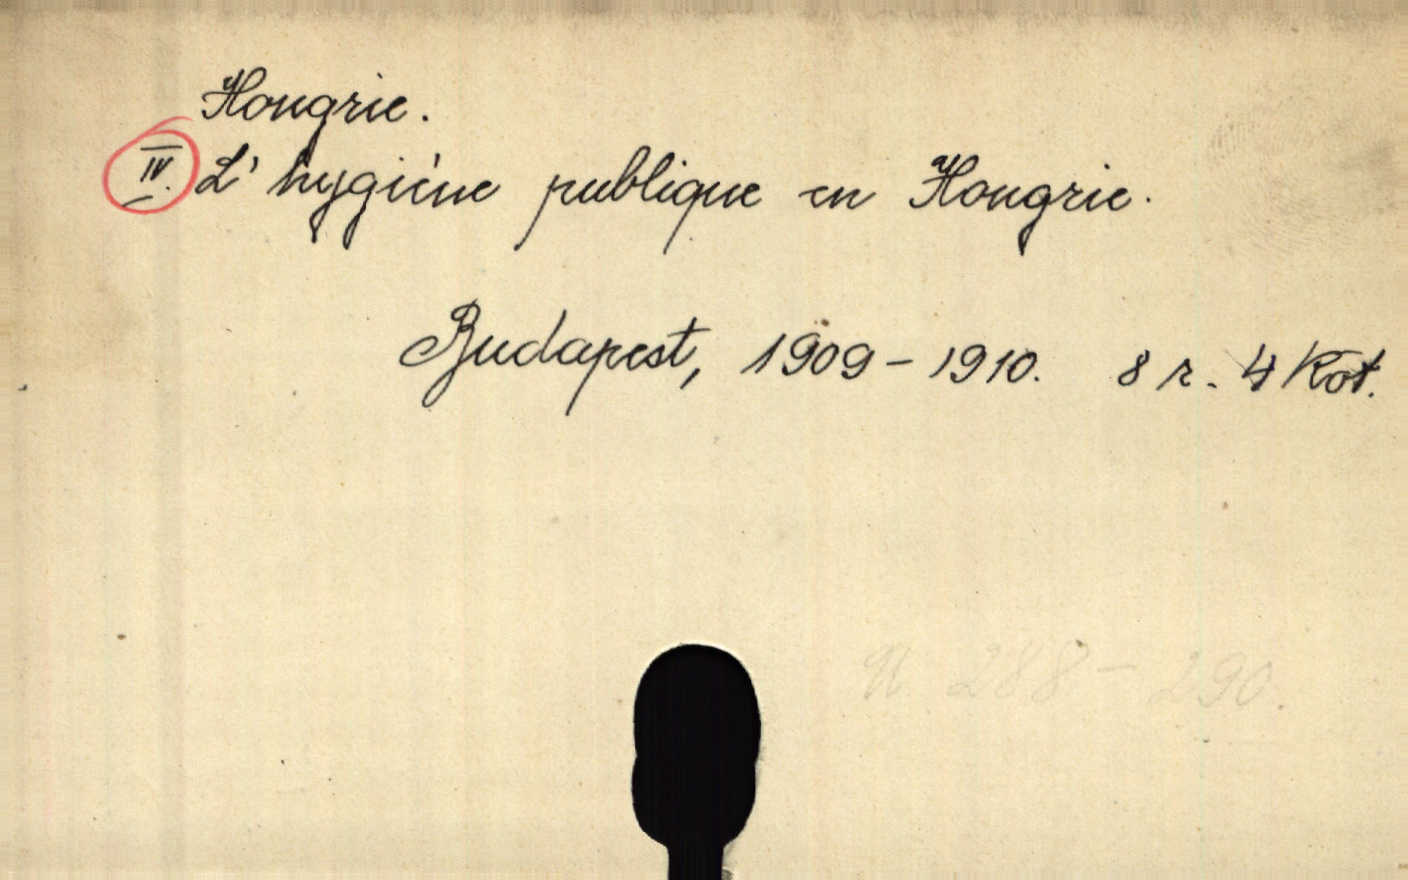 Hongrie.
IV. L'hygiène publique en Hongrie.
Budapest, 1909-1910. 8 r. 4 Köt.
N 288-290.